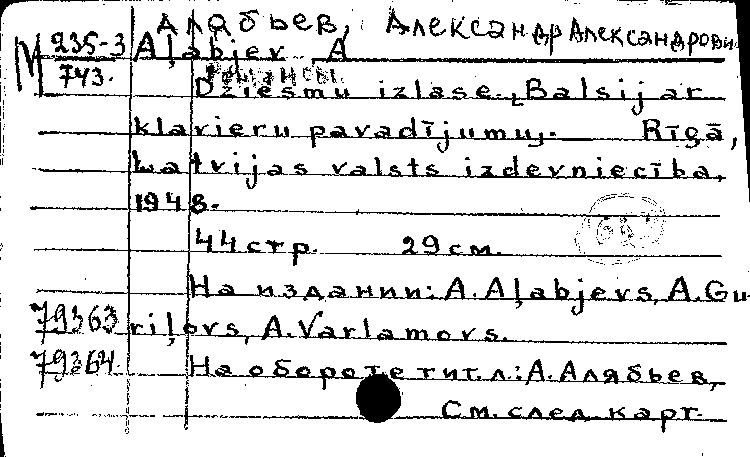 Алябьев, Александр Александрови
М 235-3
743.
Aļabjev A
Романсы.
Dziesmu izlase. Balsij ar
klavieru pavadījumu. Rīgā,
Latvijas valsts izdevniecība,
1948.
44 стр. 29 см.
На издании: A. Aļabjevs, A. Gu-
79363
riļovs, A. Varlamovs.
79364.
На обороте тит. л: А. Алябьев,
См. след. карт.